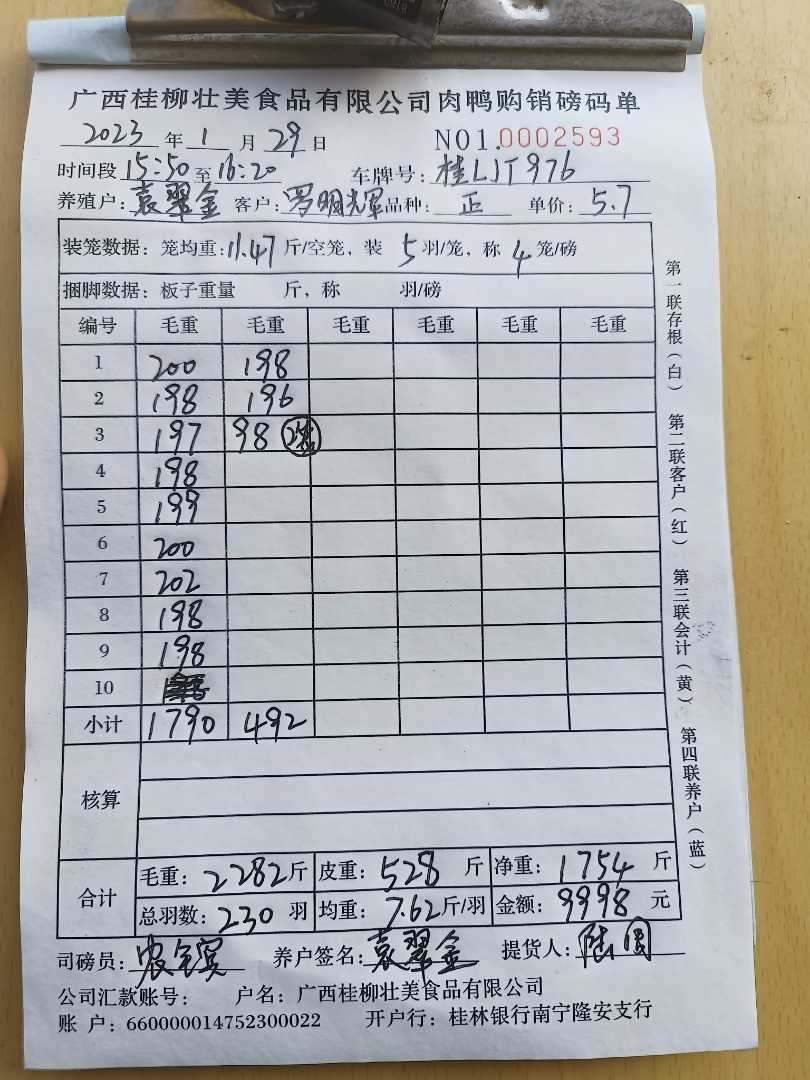 广西桂柳壮美食品有限公司肉鸭购销磅码单
2023 年 1 月 29 日 NO1.0002593
时间段 15:50 至 16:20 车牌号: 桂LJT976
养殖户: 袁翠金 客户: 罗明辉 品种: 正 单价: 5.7
装笼数据: 笼均重: 11.47 斤/空笼, 装 5 羽/笼, 称 4 笼/磅
捆脚数据: 板子重量 斤, 称 羽/磅
编号 毛重 毛重 毛重 毛重 毛重 毛重
1 200 198
2 198 196
3 197 98 2笼
4 198
5 199
6 200
7 202
8 198
9 198
10
小计 1790 492
核算
合计 毛重: 2282 斤 皮重: 528 斤 净重: 1754 斤
总羽数: 230 羽 均重: 7.62 斤/羽 金额: 9998 元
司磅员: 养户签名: 袁翠金 提货人: 陆
公司汇款账号: 户名: 广西桂柳壮美食品有限公司
账 户: 660000014752300022 开户行: 桂林银行南宁隆安支行
第一联存根(白) 第二联客户(红) 第三联会计(黄) 第四联养户(蓝)